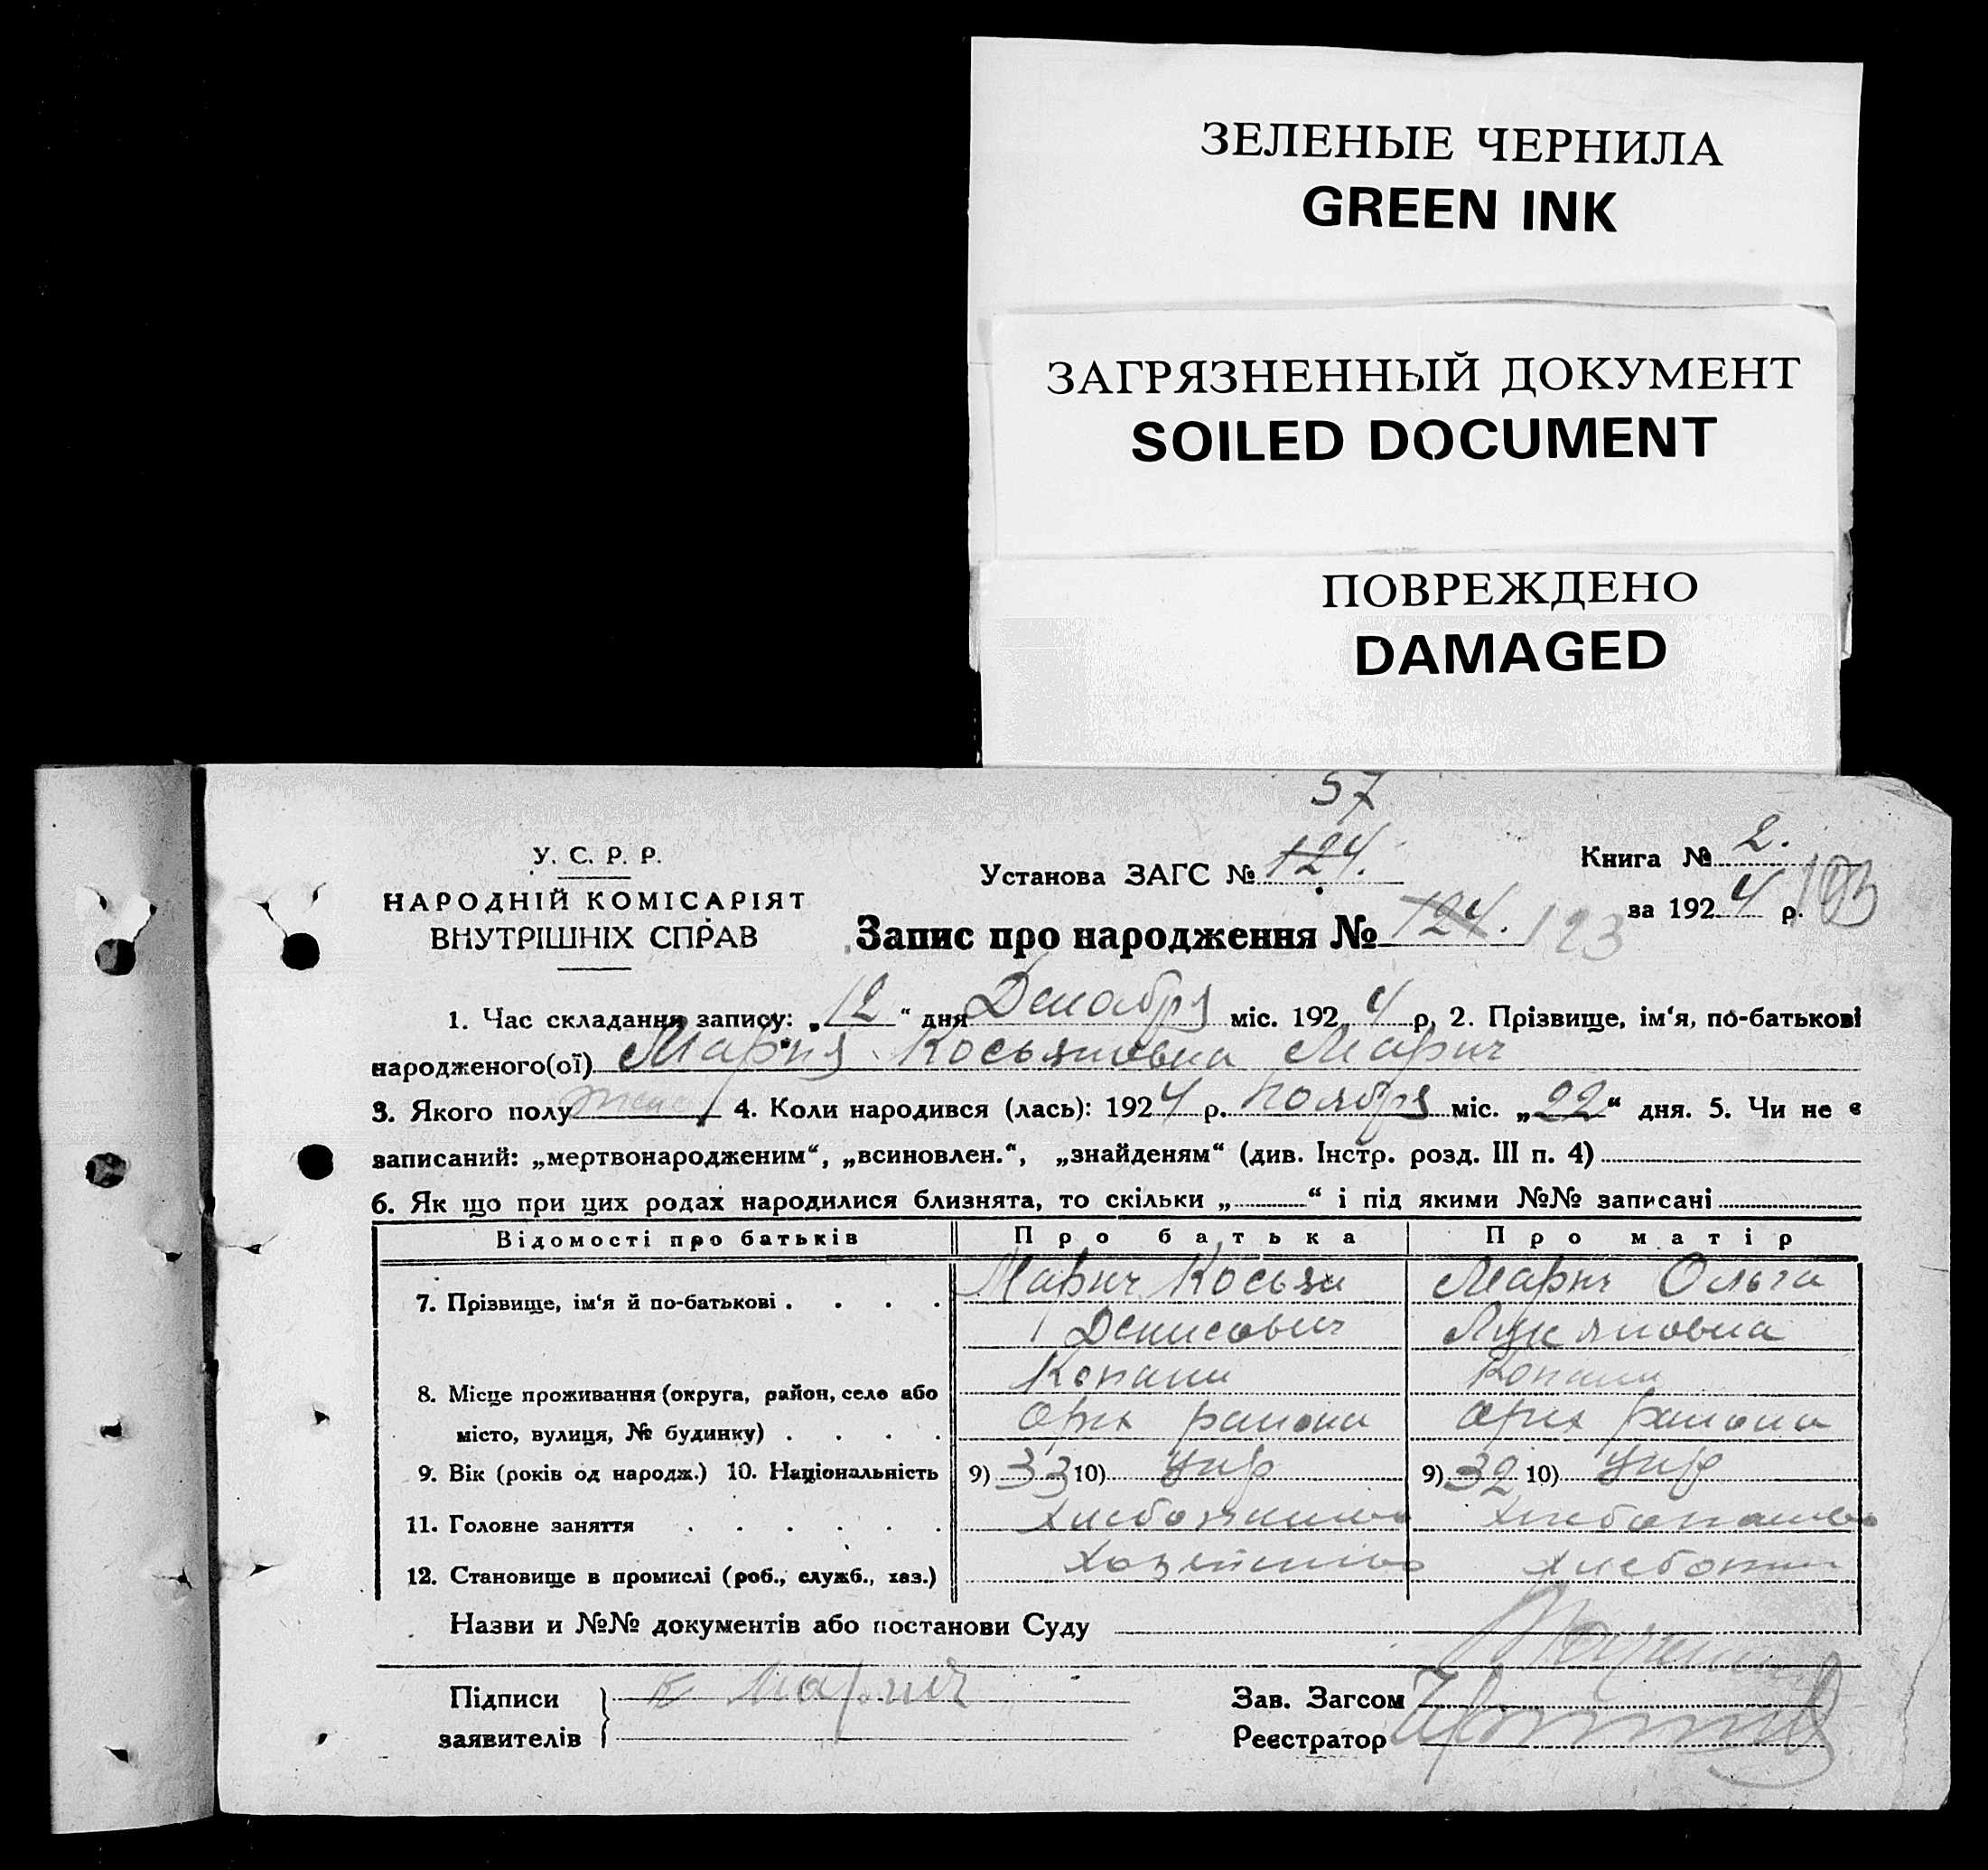 ЗЕЛЕНЫЕ ЧЕРНИЛА
GREEN INK
ЗАГРЯЗНЕННЫЙ ДОКУМЕНТ
SOILED DOCUMENT
ПОВРЕЖДЕНО
DAMAGED
57
У. С. Р. Р.
НАРОДНІЙ КОМІСАРІЯТ
ВНУТРІШНІХ СПРАВ
Установа ЗАГС № 124.
Книга № 2.
за 1924 р. 193
Запис про народження № 124. 123
1. Час складання запису: „12“ дня Декабря міс. 1924 р. 2. Прізвище, ім‘я, по-батькові
народженого(ої) Мария Косьяновна Марич
3. Якого полу жен 4. Коли народився (лась): 1924 р. Ноября міс. „22“ дня. 5. Чи не є
записаний: „мертвонародженим“, „всиновлен.“, „знайденям“ (див. Інстр. розд. III п. 4)
6. Як що при цих родах народилися близнята, то скільки „ “ і під якими №№ записані
Відомості про батьків Про батька Про матір
7. Прізвище, ім‘я й по-батькові . . . . Марич Косьян Марич Ольга
Денисович Лукяновна
Копани Копани
8. Місце проживання (округа, район, село або
місто, вулиця, № будинку) . . . . Орих района Орих района
9. Вік (років од народж.) 10. Національність 9) 33 10) Укр 9) 32 10) Укр
11. Головне заняття . . . . . . Хлебопашество Хлебопашество
12. Становище в промислі (роб., служб., хаз.)
Назви и №№ документів або постанови Суду
Підписи
заявителів
К Марич
Зав. Загсом
Реєстратор